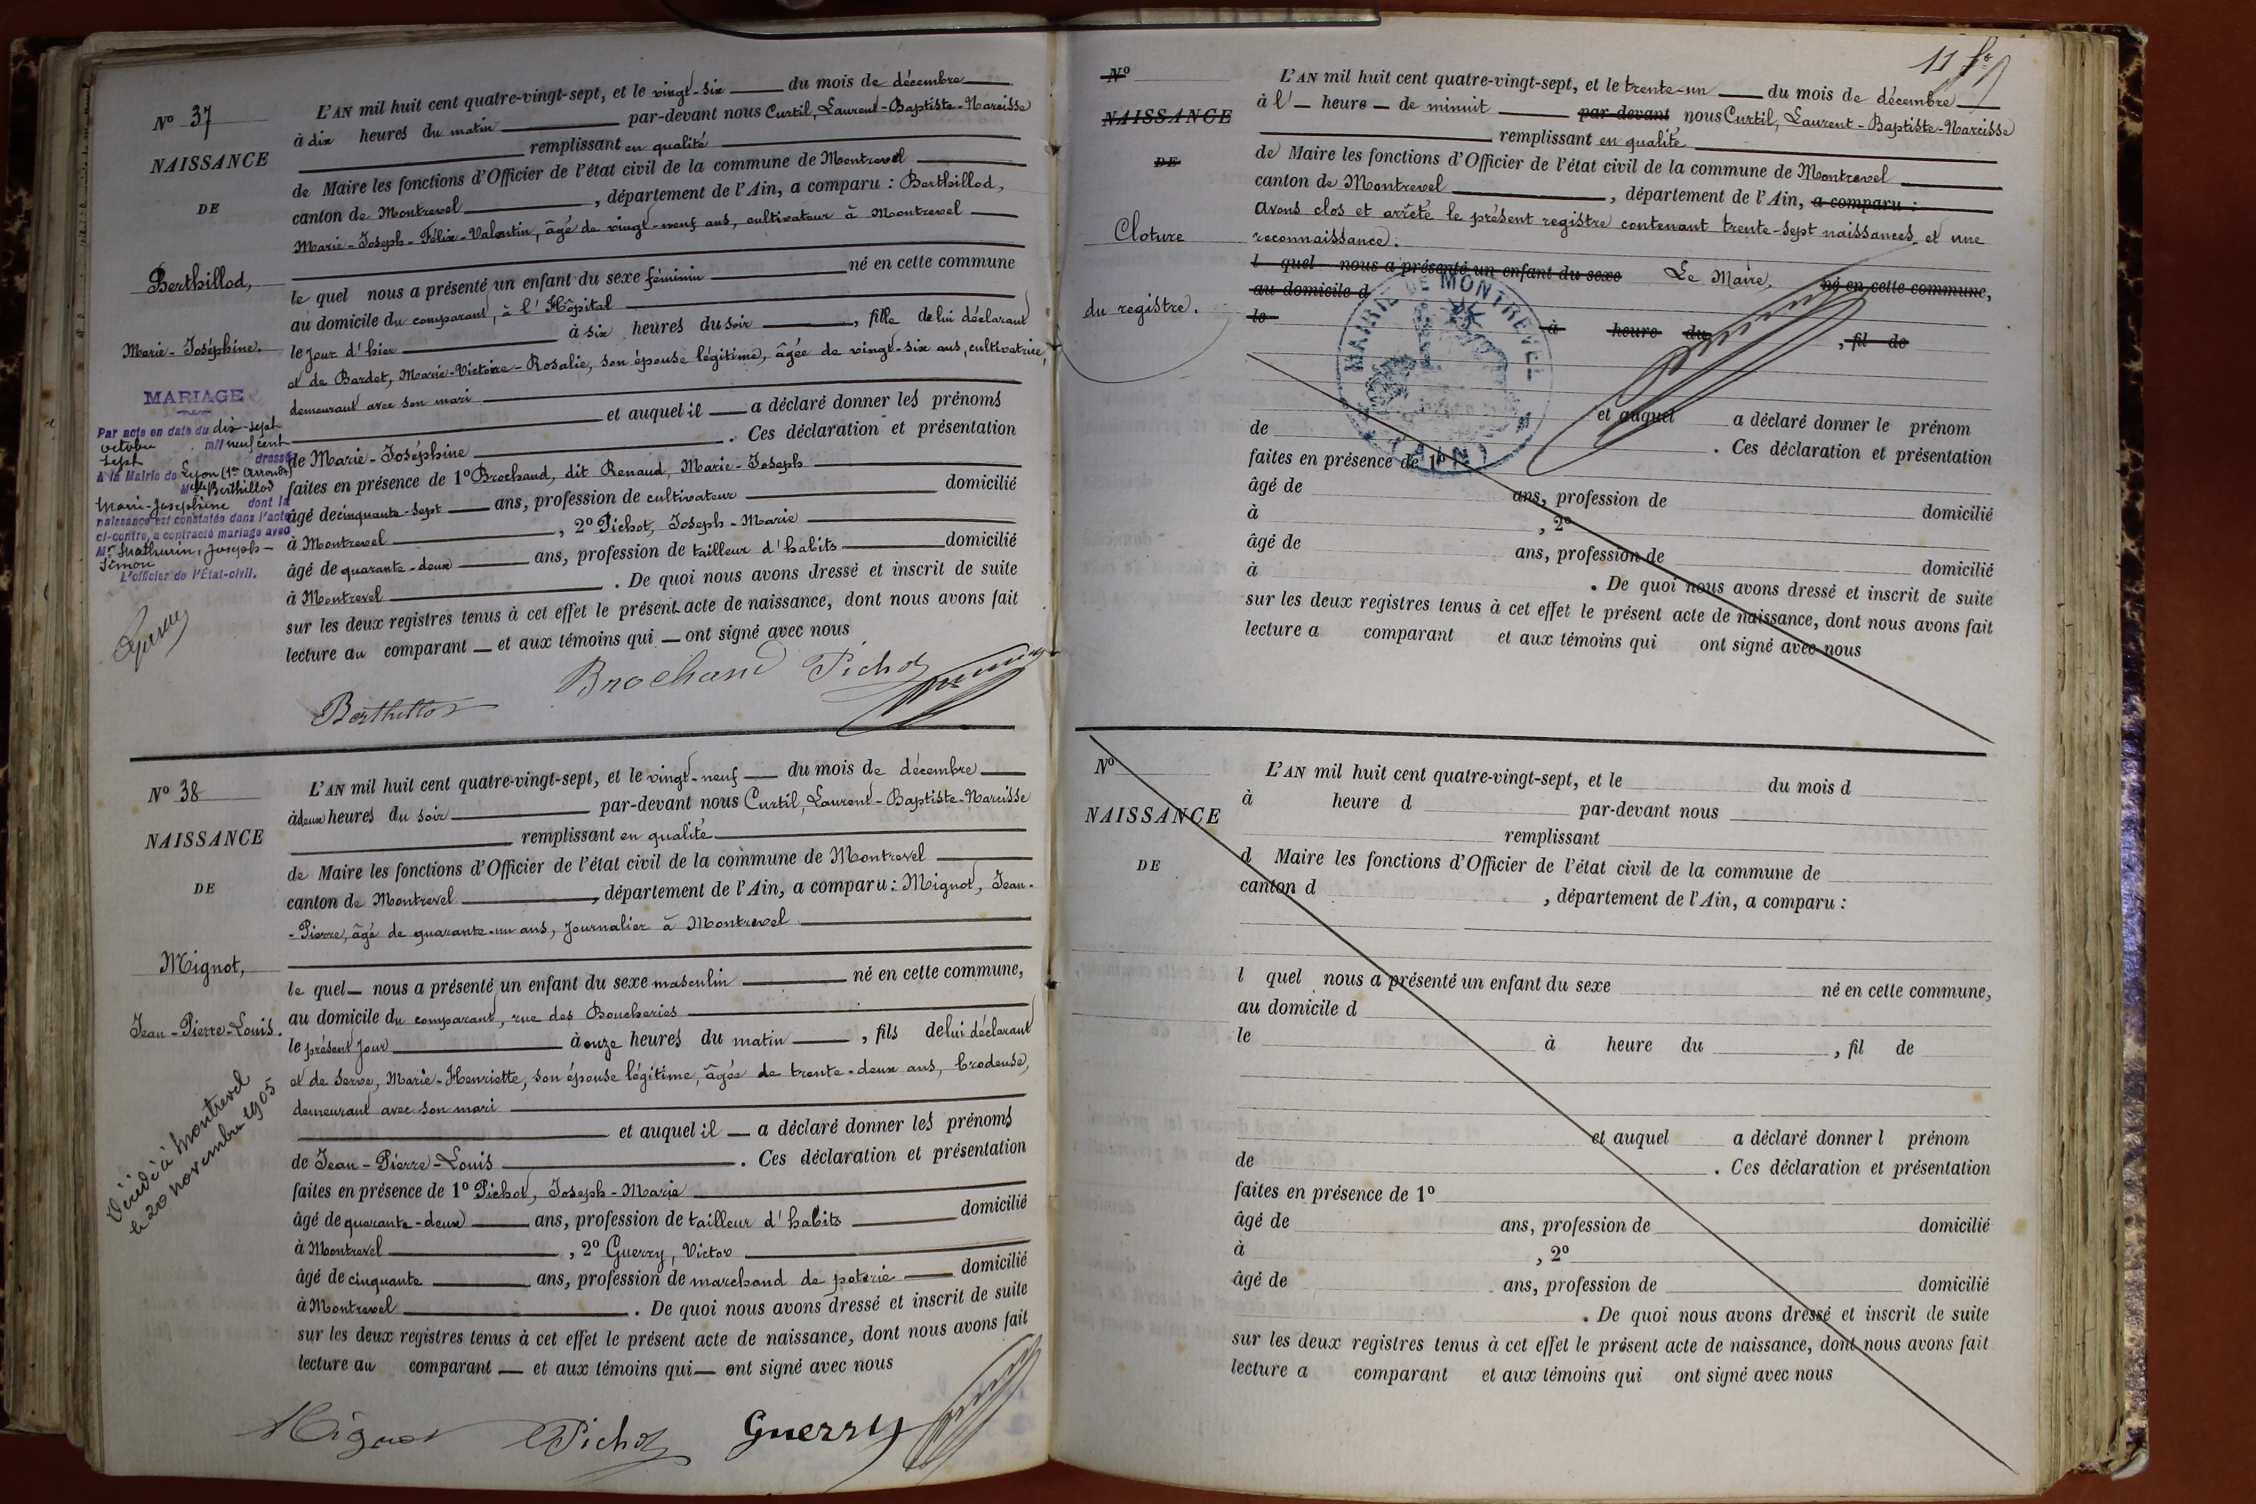 N° 37
NAISSANCE
DE
Berthillod,
Marie-Joséphine.
MARIAGE
Par acte en date du dix-sept
octobre mil neuf cent
sept dressé
A la Mairie de Lyon (1er Arrondt)
Melle Berthillod
Marie-Joséphine dont la
naissance est constatée dans l'acte
ci-contre, a contracté mariage avec
Mr Mathurin, Joseph-
Simon
L'officier de l'État-civil.
L'AN mil huit cent quatre-vingt-sept, et le vingt-six du mois de décembre
à dix heures du matin par-devant nous Curtil, Laurent-Baptiste-Narcisse
remplissant en qualité
de Maire les fonctions d'Officier de l'état civil de la commune de Montrevel
canton de Montrevel, département de l'Ain, a comparu : Berthillod,
Marie-Joseph-Félix-Valentin, âgé de vingt-neuf ans, cultivateur à Montrevel
le quel nous a présenté un enfant du sexe féminin né en cette commune
au domicile du comparant, à l'Hôpital
le jour d'hier à six heures du soir, fille de lui déclarant
et de Bardet, Marie-Victoire-Rosalie, son épouse légitime, âgée de vingt-six ans, cultivatrice,
demeurant avec son mari
et auquel il a déclaré donner les prénoms
de Marie-Joséphine. Ces déclaration et présentation
faites en présence de 1° Brochand, dit Renaud, Marie-Joseph
âgé de cinquante-sept ans, profession de cultivateur domicilié
à Montrevel, 2° Pichot, Joseph-Marie
âgé de quarante-deux ans, profession de tailleur d'habits domicilié
à Montrevel. De quoi nous avons dressé et inscrit de suite
sur les deux registres tenus à cet effet le présent acte de naissance, dont nous avons fait
lecture au comparant et aux témoins qui ont signé avec nous
Brochand Pichot
Berthillod
N° 38
NAISSANCE
DE
Mignot,
Jean-Pierre-Louis.
Décédé à Montrevel
le 20 novembre 1905
L'AN mil huit cent quatre-vingt-sept, et le vingt-neuf du mois de décembre
à deux heures du soir par-devant nous Curtil, Laurent-Baptiste-Narcisse
remplissant en qualité
de Maire les fonctions d'Officier de l'état civil de la commune de Montrevel
canton de Montrevel, département de l'Ain, a comparu : Mignot, Jean-
-Pierre, âgé de quarante-un ans, journalier à Montrevel
le quel nous a présenté un enfant du sexe masculin né en cette commune,
au domicile du comparant, rue des Boucheries
le présent jour à onze heures du matin, fils de lui déclarant
et de Serve, Marie-Henriette, son épouse légitime, âgée de trente-deux ans, brodeuse,
demeurant avec son mari
et auquel il a déclaré donner les prénoms
de Jean-Pierre-Louis. Ces déclaration et présentation
faites en présence de 1° Pichot, Joseph-Marie
âgé de quarante-deux ans, profession de tailleur d'habits domicilié
à Montrevel, 2° Guerry, Victor
âgé de cinquante ans, profession de marchand de poterie domicilié
à Montrevel. De quoi nous avons dressé et inscrit de suite
sur les deux registres tenus à cet effet le présent acte de naissance, dont nous avons fait
lecture au comparant et aux témoins qui ont signé avec nous
Mignot Pichot Guerry
11
N°
NAISSANCE
DE
Cloture
du registre.
L'AN mil huit cent quatre-vingt-sept, et le trente-un du mois de décembre
à l' heure de minuit par-devant nous Curtil, Laurent-Baptiste-Narcisse
remplissant en qualité
de Maire les fonctions d'Officier de l'état civil de la commune de Montrevel
canton de Montrevel, département de l'Ain, a comparu :
avons clos et arrêté le présent registre contenant trente-sept naissances et une
reconnaissance.
l quel nous a présenté un enfant du sexe Le Maire, né en cette commune,
au domicile d
le à heure du, fil de
MAIRIE DE MONTREVEL
(AIN)
et auquel a déclaré donner le prénom
de. Ces déclaration et présentation
faites en présence de 1°
âgé de ans, profession de domicilié
à, 2°
âgé de ans, profession de domicilié
à. De quoi nous avons dressé et inscrit de suite
sur les deux registres tenus à cet effet le présent acte de naissance, dont nous avons fait
lecture a comparant et aux témoins qui ont signé avec nous
N°
NAISSANCE
DE
L'AN mil huit cent quatre-vingt-sept, et le du mois d
à heure d par-devant nous
remplissant
d Maire les fonctions d'Officier de l'état civil de la commune de
canton d, département de l'Ain, a comparu :
l quel nous a présenté un enfant du sexe né en cette commune,
au domicile d
le à heure du, fil de
et auquel a déclaré donner l prénom
de. Ces déclaration et présentation
faites en présence de 1°
âgé de ans, profession de domicilié
à, 2°
âgé de ans, profession de domicilié
. De quoi nous avons dressé et inscrit de suite
sur les deux registres tenus à cet effet le présent acte de naissance, dont nous avons fait
lecture a comparant et aux témoins qui ont signé avec nous